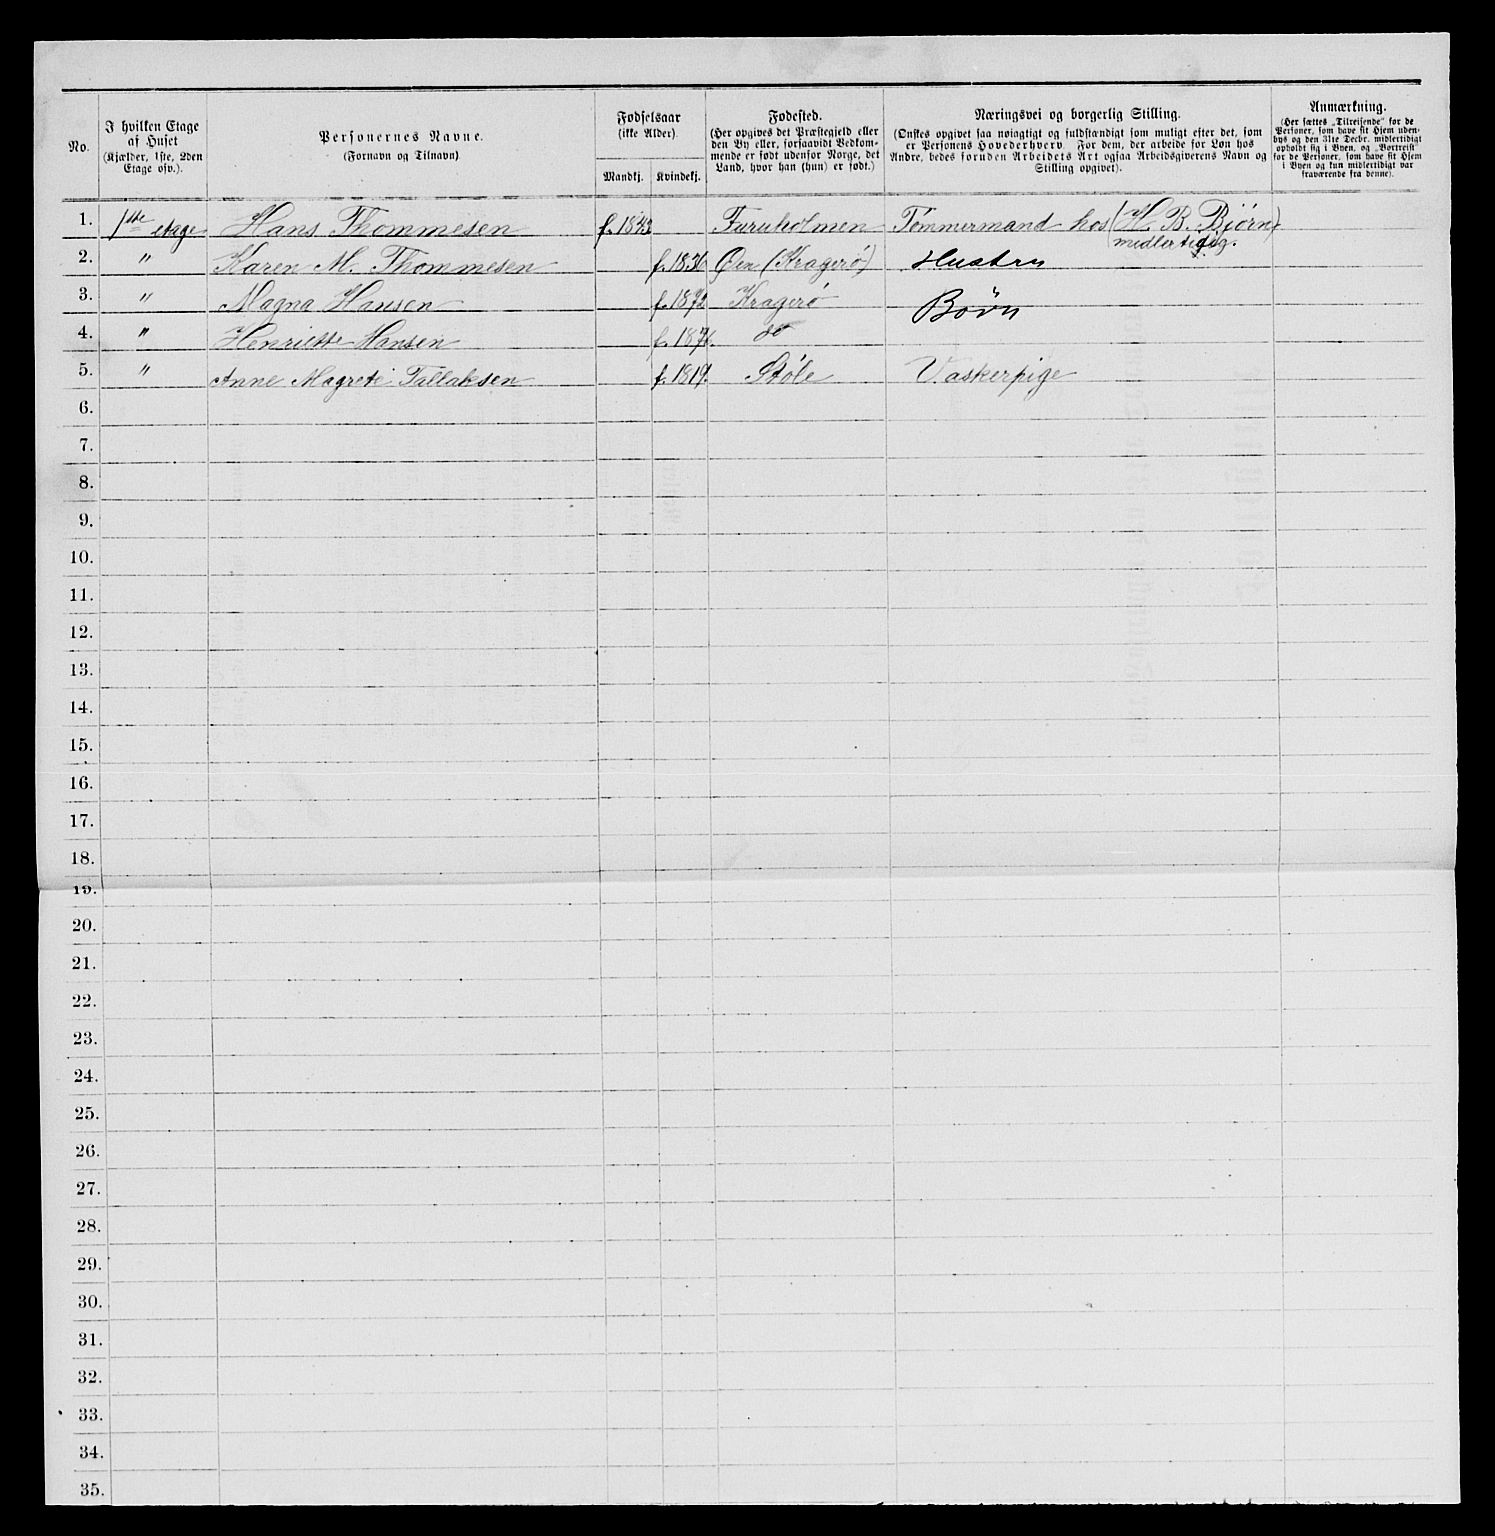 No.
I hvilken Etage
af Huset
(Kjælder, 1ste, 2den
Etage osv.).
Personernes Navne.
(Fornavn og Tilnavn)
Fødselsaar
(ikke Alder)
Mandkj. Kvindekj.
Fødested.
(Her opgives det Præstegjeld eller
den By eller, forsaavidt Vedkom-
mende er født udenfor Norge, det
Land, hvor han (hun) er født.)
Næringsvei og borgerlig Stilling.
(Ønskes opgivet saa nøiagtigt og fuldstændigt som muligt efter det, som
er Personens Hovederhverv. For dem, der arbeide for Løn hos
Andre, bedes foruden Arbeidets Art ogsaa Arbeidsgiverens Navn og
Stilling opgivet).
Anmærkning.
(Her sættes „Tilreisende" for de
Personer, som have sit Hjem uden-
bys og den 31te Decbr. midlertidigt
opholdt sig i Byen, og „Bortreist"
for de Personer, som have sit Hjem
i Byen og kun midlertidigt var
fraværende fra denne).
1. 1ste etage Hans Thommesen f. 1843 Furuholmen Tömmermand hos (H. B. Bjørn)
midlertidig.
2. " Karen M. Thommesen f. 1836 Øen (Kragerö) Hustru
3. " Magna Hansen Kragerö Børn
4. " Henriette Hansen f. 1876. do
5. " Anne Magrete Tallaksen f. 1819. Støle Vaskerpige
6.
7.
8.
9.
10.
11.
12.
13.
14.
15.
16.
17.
18.
19.
20.
21.
22.
23.
24.
25.
26.
27.
28.
29.
30.
31.
32.
33.
34.
35.